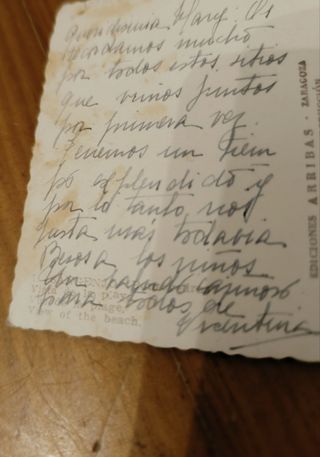 Queridísima Mary: Os
recordamos mucho
por todos estos sitios
que vimos juntos
por primera vez.
Tenemos un tiem
po esplendido y
por lo tanto nos
gusta mas todavia
Besos a los niños
un saludo cariñoso
para todos de
Vicentina
View of the beach.
EDICIONES ARRIBAS - ZARAGOZA